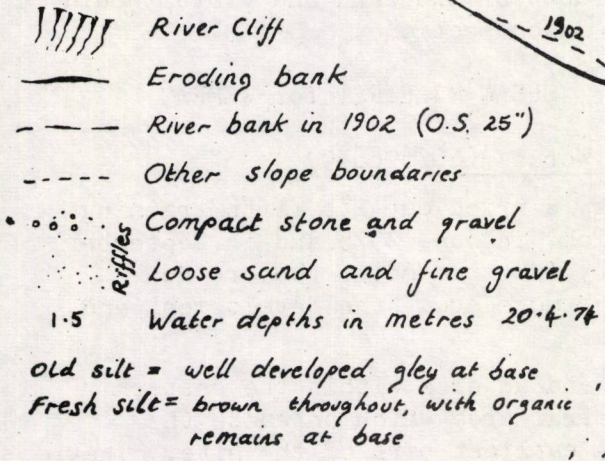 1902
River Cliff
Eroding bank
River bank in 1902 (O.S. 25")
Other slope boundaries
Compact stone and gravel
Riffles
Loose sand and fine gravel
1·5 Water depths in metres 20·4·74
Old silt = well developed gley at base
Fresh silt = brown throughout, with organic
remains at base